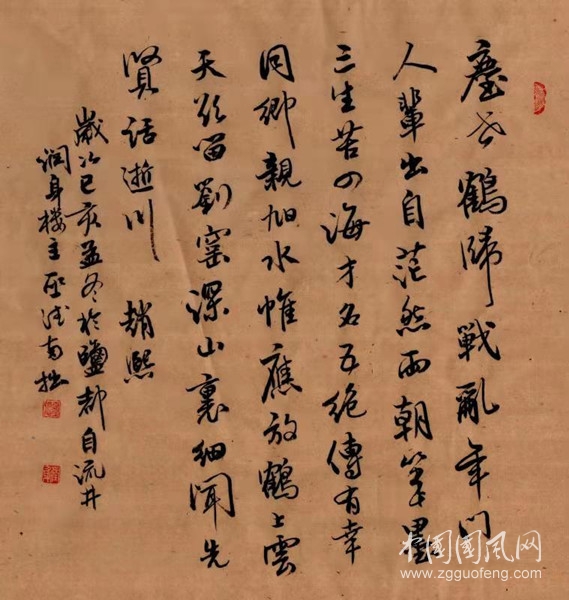 塵世鶴歸戰亂年門
人輩出自茫然兩朝筆墨
三生苦四海才名五絕傳有幸
同鄉親旭水惟應放鶴上雲
天欲留劉窰深山裏細聞先
賢話逝川 趙熙
歲次已亥孟冬於鹽都自流井
润身樓主南拙
中國國风网
www.zgguofeng.com